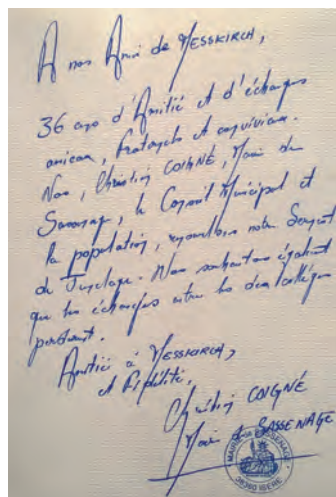 A nos Amis de MESSKIRCH,
36 ans d'Amitié et d'échanges
amicaux, fraternels et conviviaux.
Nous, Christian COIGNÉ, Maire de
Sassenage, le Conseil Municipal et
la population, renouvelons notre Serment
de Jumelage. Nous souhaitons également
que les échanges entre les deux collèges
perdurent.
Amitié à MESSKIRCH,
et Fidélité,
Christian COIGNÉ
Maire de SASSENAGE
MAIRIE DE SASSENAGE
38360 ISERE